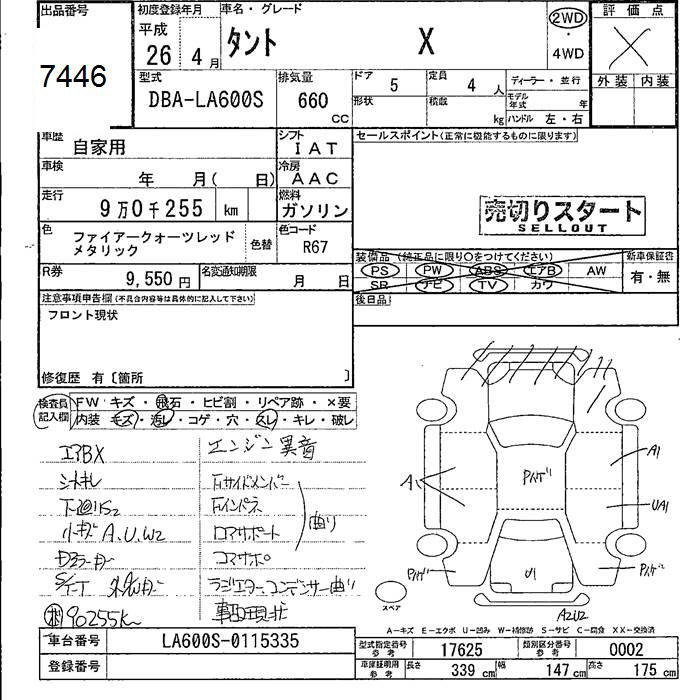 出品番号
7446
初度登録年月
平成
26 4月
車名・グレード
タント X
2WD
・
4WD
評価点
外装 内装
型式
DBA-LA600S
排気量
660
CC
ドア
5
定員
4人
形状
積載
kg
ディーラー・並行
モデル年式 年
ハンドル 左・右
車歴
自家用
シフト
IAT
車検
年 月( 日)
冷房
AAC
走行
9万0千255 km
燃料
ガソリン
色
ファイアークォーツレッド
メタリック
色替
色コード
R67
R券
9,550円
名変通知期限
月 日
セールスポイント(正常に機能するものに限ります)
売切りスタート
SELLOUT
装備品(純正品に限り○をつけてください)
PS PW ABS エアB AW
SR ナビ TV カワ
新車保証書
有・無
後日品
注意事項申告欄(不具合内容等は具体的に記入して下さい)
フロント現状
修復歴 有〔箇所 〕
検査員記入欄
FW キズ・飛石・ヒビ割・リペア跡・×要
内装 モズ・汚レ・コゲ・穴・スレ・キレ・破レ
エアBX
エンジン異音
小キズ A.U.W2
曲り
コアサポート
ラジエター コンデンサー曲り
90255K
A1
A
UA1
U1
スペア
A2U2
A-キズ E-エクボ U-凹み W-補修跡 S-サビ C-腐食 XX-交換済
車台番号
LA600S-0115335
登録番号
型式指定番号
参考
17625
類別区分番号
参考
0002
車庫証明用
参考
長さ 339 cm
幅 147 cm
高さ 175 cm